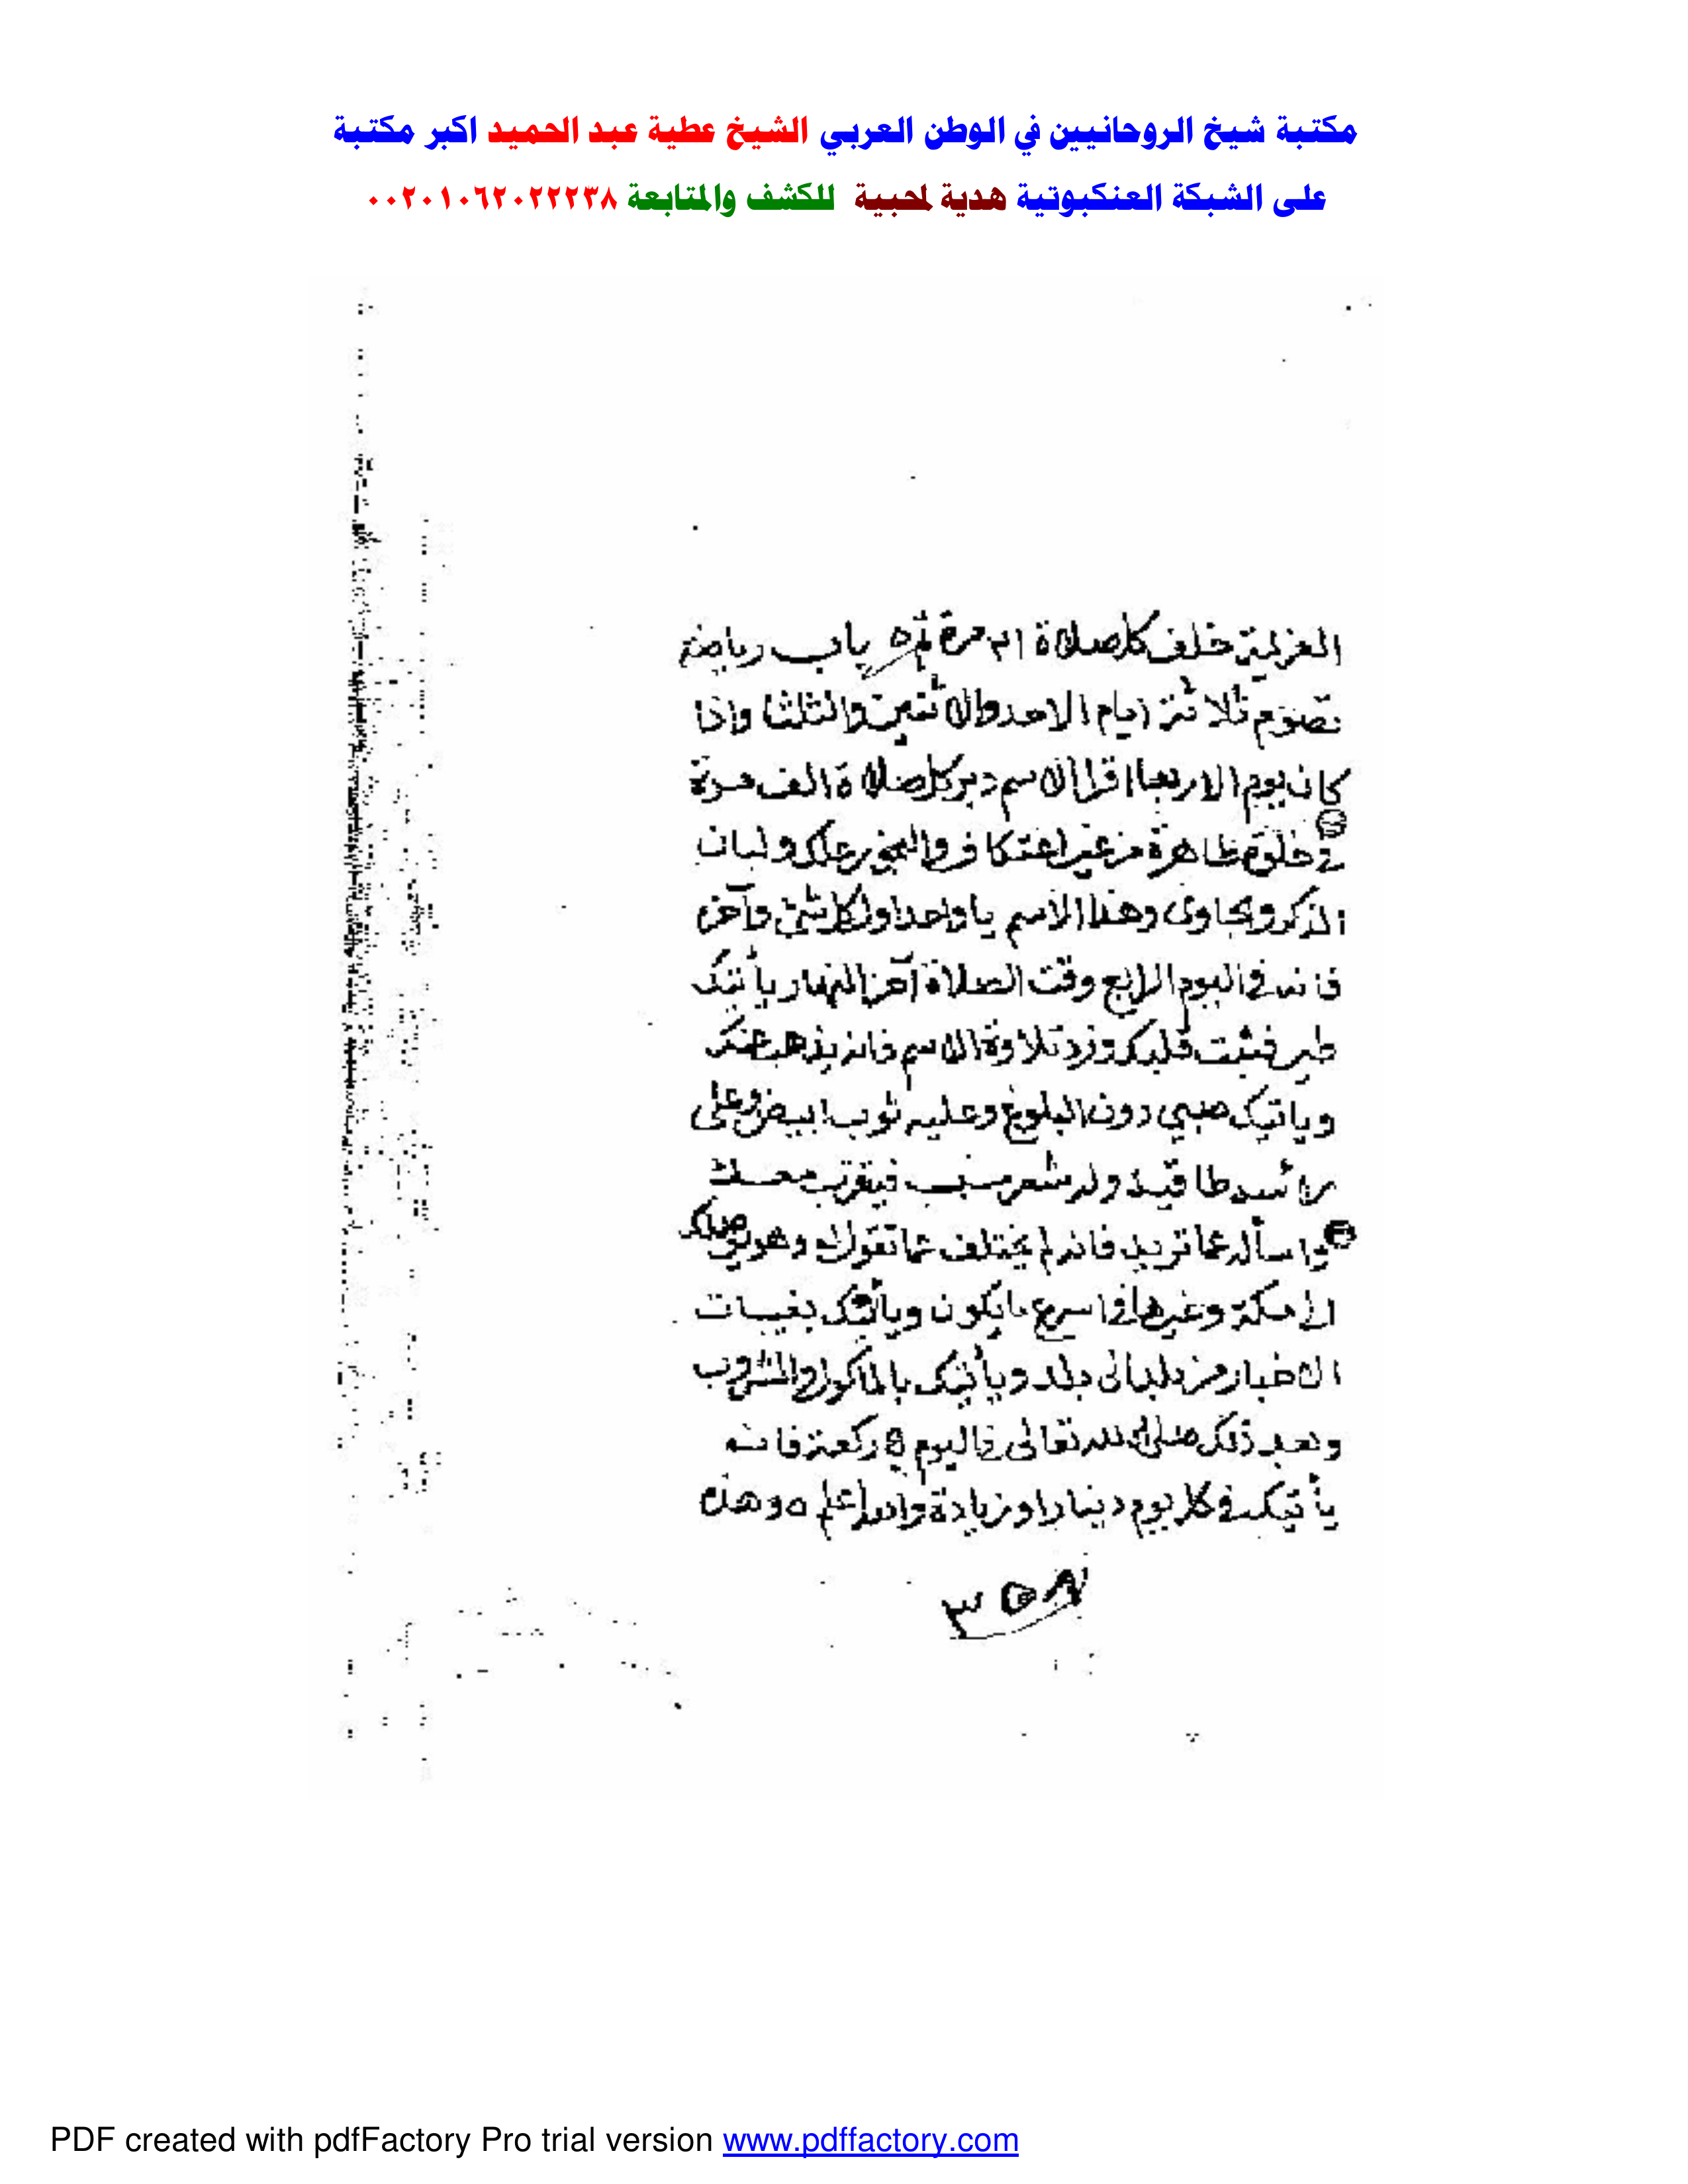 مكتبة شيخ الروحانيين في الوطن العربي الشيخ عطية عبد الحميد اكبر مكتبة
على الشبكة العنكبوتية هدية لمحبية للكشف والمتابعة ٠٠٢٠١٠٦٢٠٢٢٢٣٨
العزيمة خلف كل صلاة مرة باب رياضة
تصوم ثلاثة ايام الاحد والاثنين والثلثا واذا
كان يوم الاربعا اقرا الاسم دبر كل صلاة الف مرة
في خلوة طاهرة من غير اعتكاف والبخور علك ولبان
الذكر وجاوى وهذا الاسم يا واحد اول كل شيئ وآخره
فانه في اليوم الرابع وقت الصلاة آخر النهار يأتيك
طير فثبت قلبك وزد تلاوة الاسم فانه يذهب عنك
وياتيك صبي دون البلوغ وعليه ثوب ابيض وعلى
رأسه طاقية وله شعر فيقرب
واسأله عما تريد فانه لم يختلف عما تقوله وهو يوصلك
الى مكة وغيرها في اسرع ما يكون ويأتيك
الاخبار من بلد الى بلد ويأتيك بالماكول والمشروب
وبعد ذلك صلى لله تعالى في اليوم ركعة فانه
يأتيك في كل يوم دينارا وزيادة والله اعلم ه وهذه
٣٥٨
PDF created with pdfFactory Pro trial version www.pdffactory.com